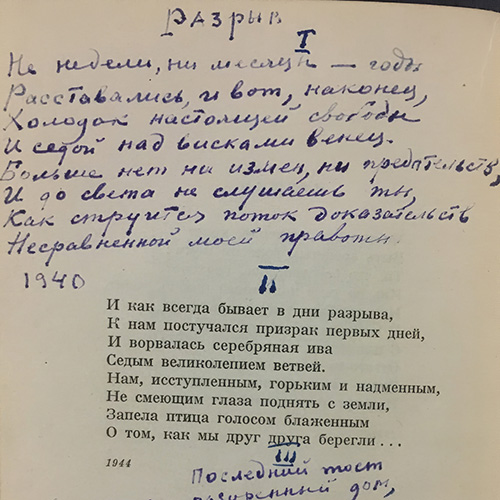 Разрыв
I
Не недели, ни месяцы — годы
Расставались, и вот, наконец,
Холодок настоящей свободы
И седой над висками венец.
Больше нет ни измен, ни предательств,
И до света не слушаешь ты,
Как струится поток доказательств
Несравненной моей правоты.
1940
II
И как всегда бывает в дни разрыва,
К нам постучался призрак первых дней,
И ворвалась серебряная ива
Седым великолепием ветвей.
Нам, исступленным, горьким и надменным,
Не смеющим глаза поднять с земли,
Запела птица голосом блаженным
О том, как мы друг друга берегли...
III
1944
Последний тост
разоренный дом,